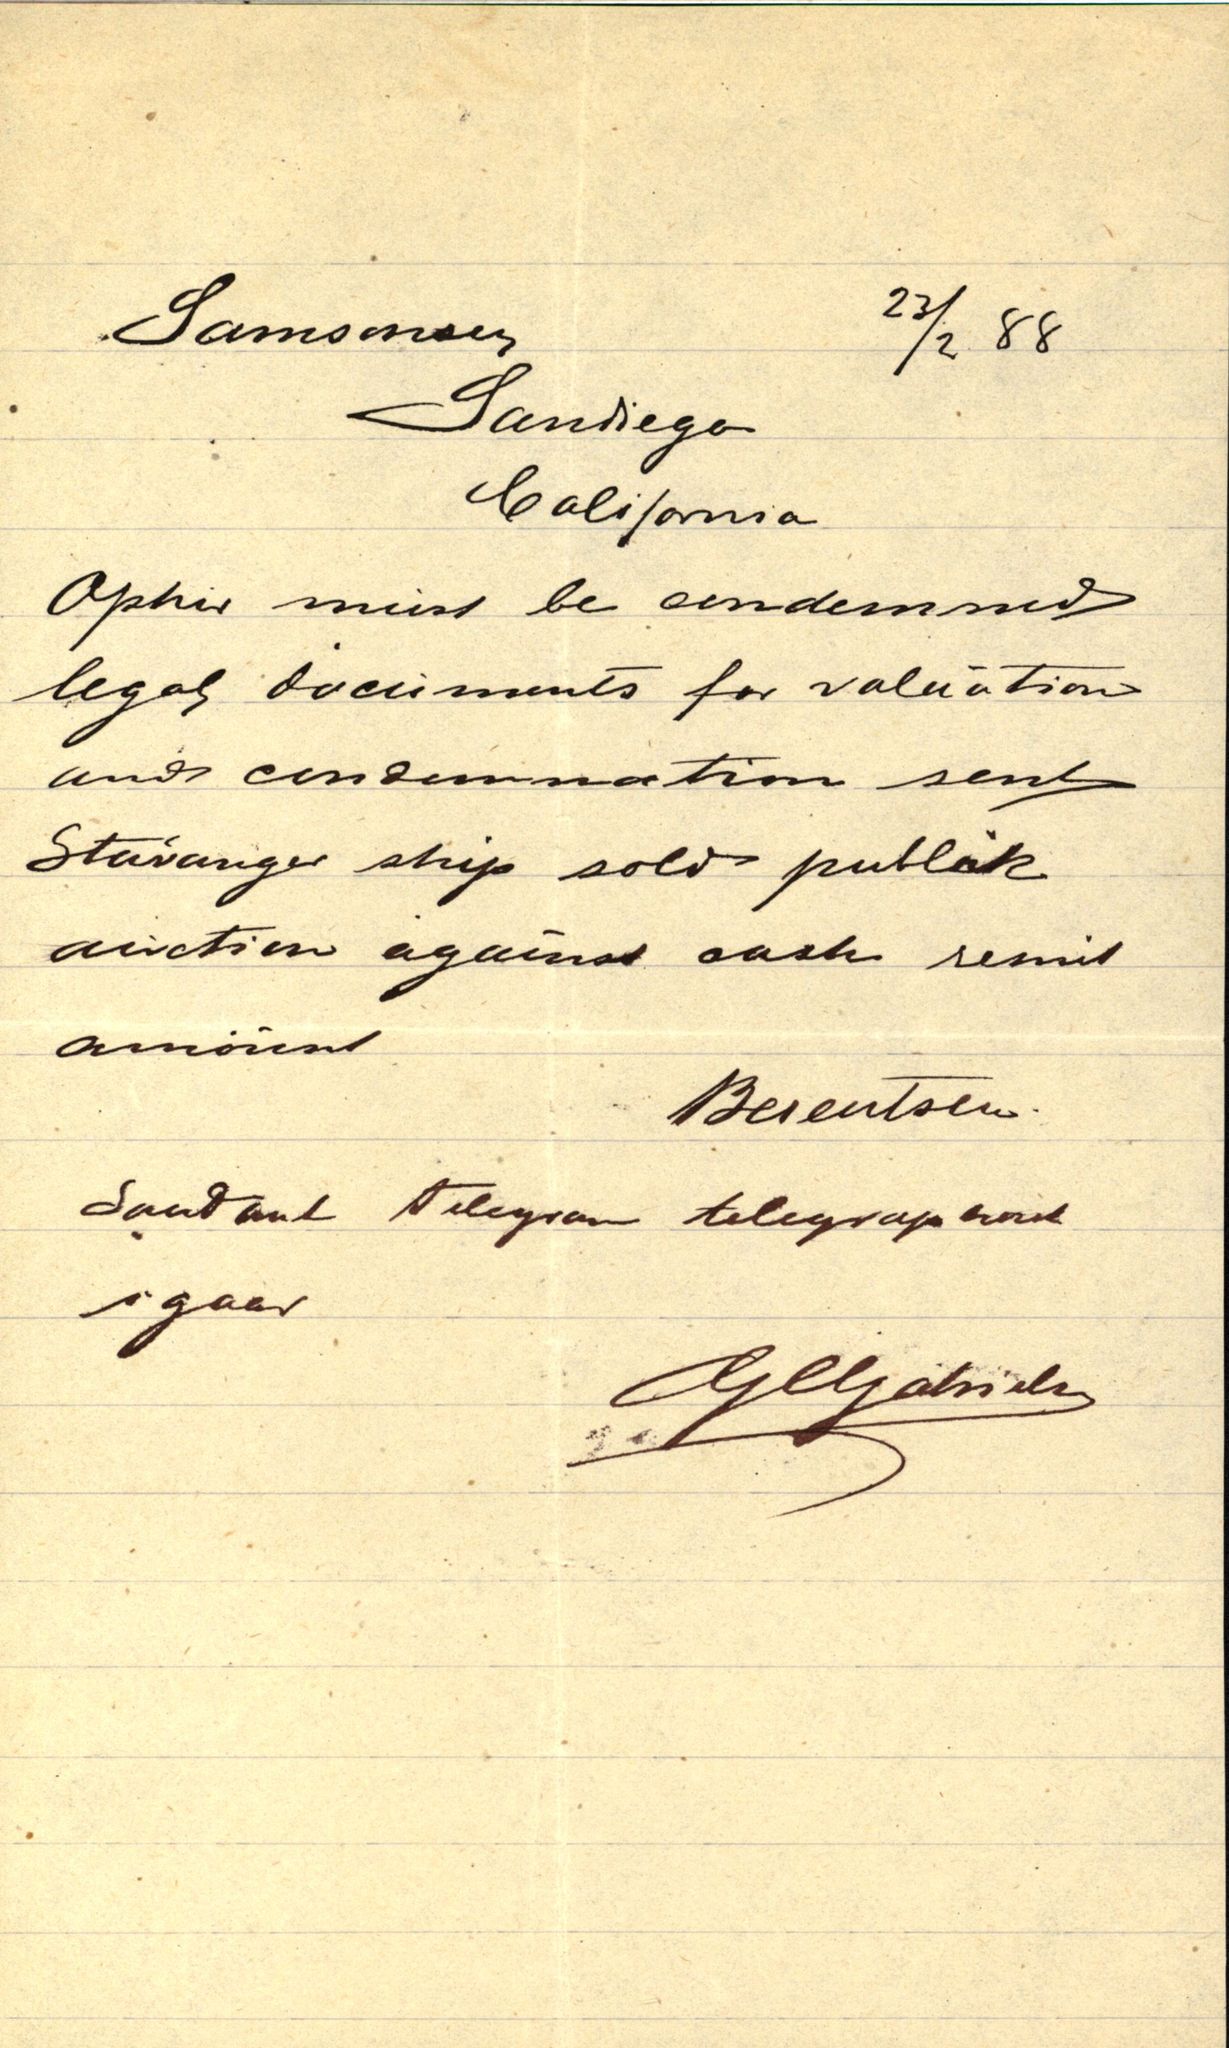 Samsonsen 23/2 88
Sandiego
California
Ophir must be condemned
legal documents for valuation
and condemnation sent
Stavanger ship sold publik
auction against cash remit
amount
Berentsen
Saadant Telegram telegrapheret
igaar
Gabrielsen